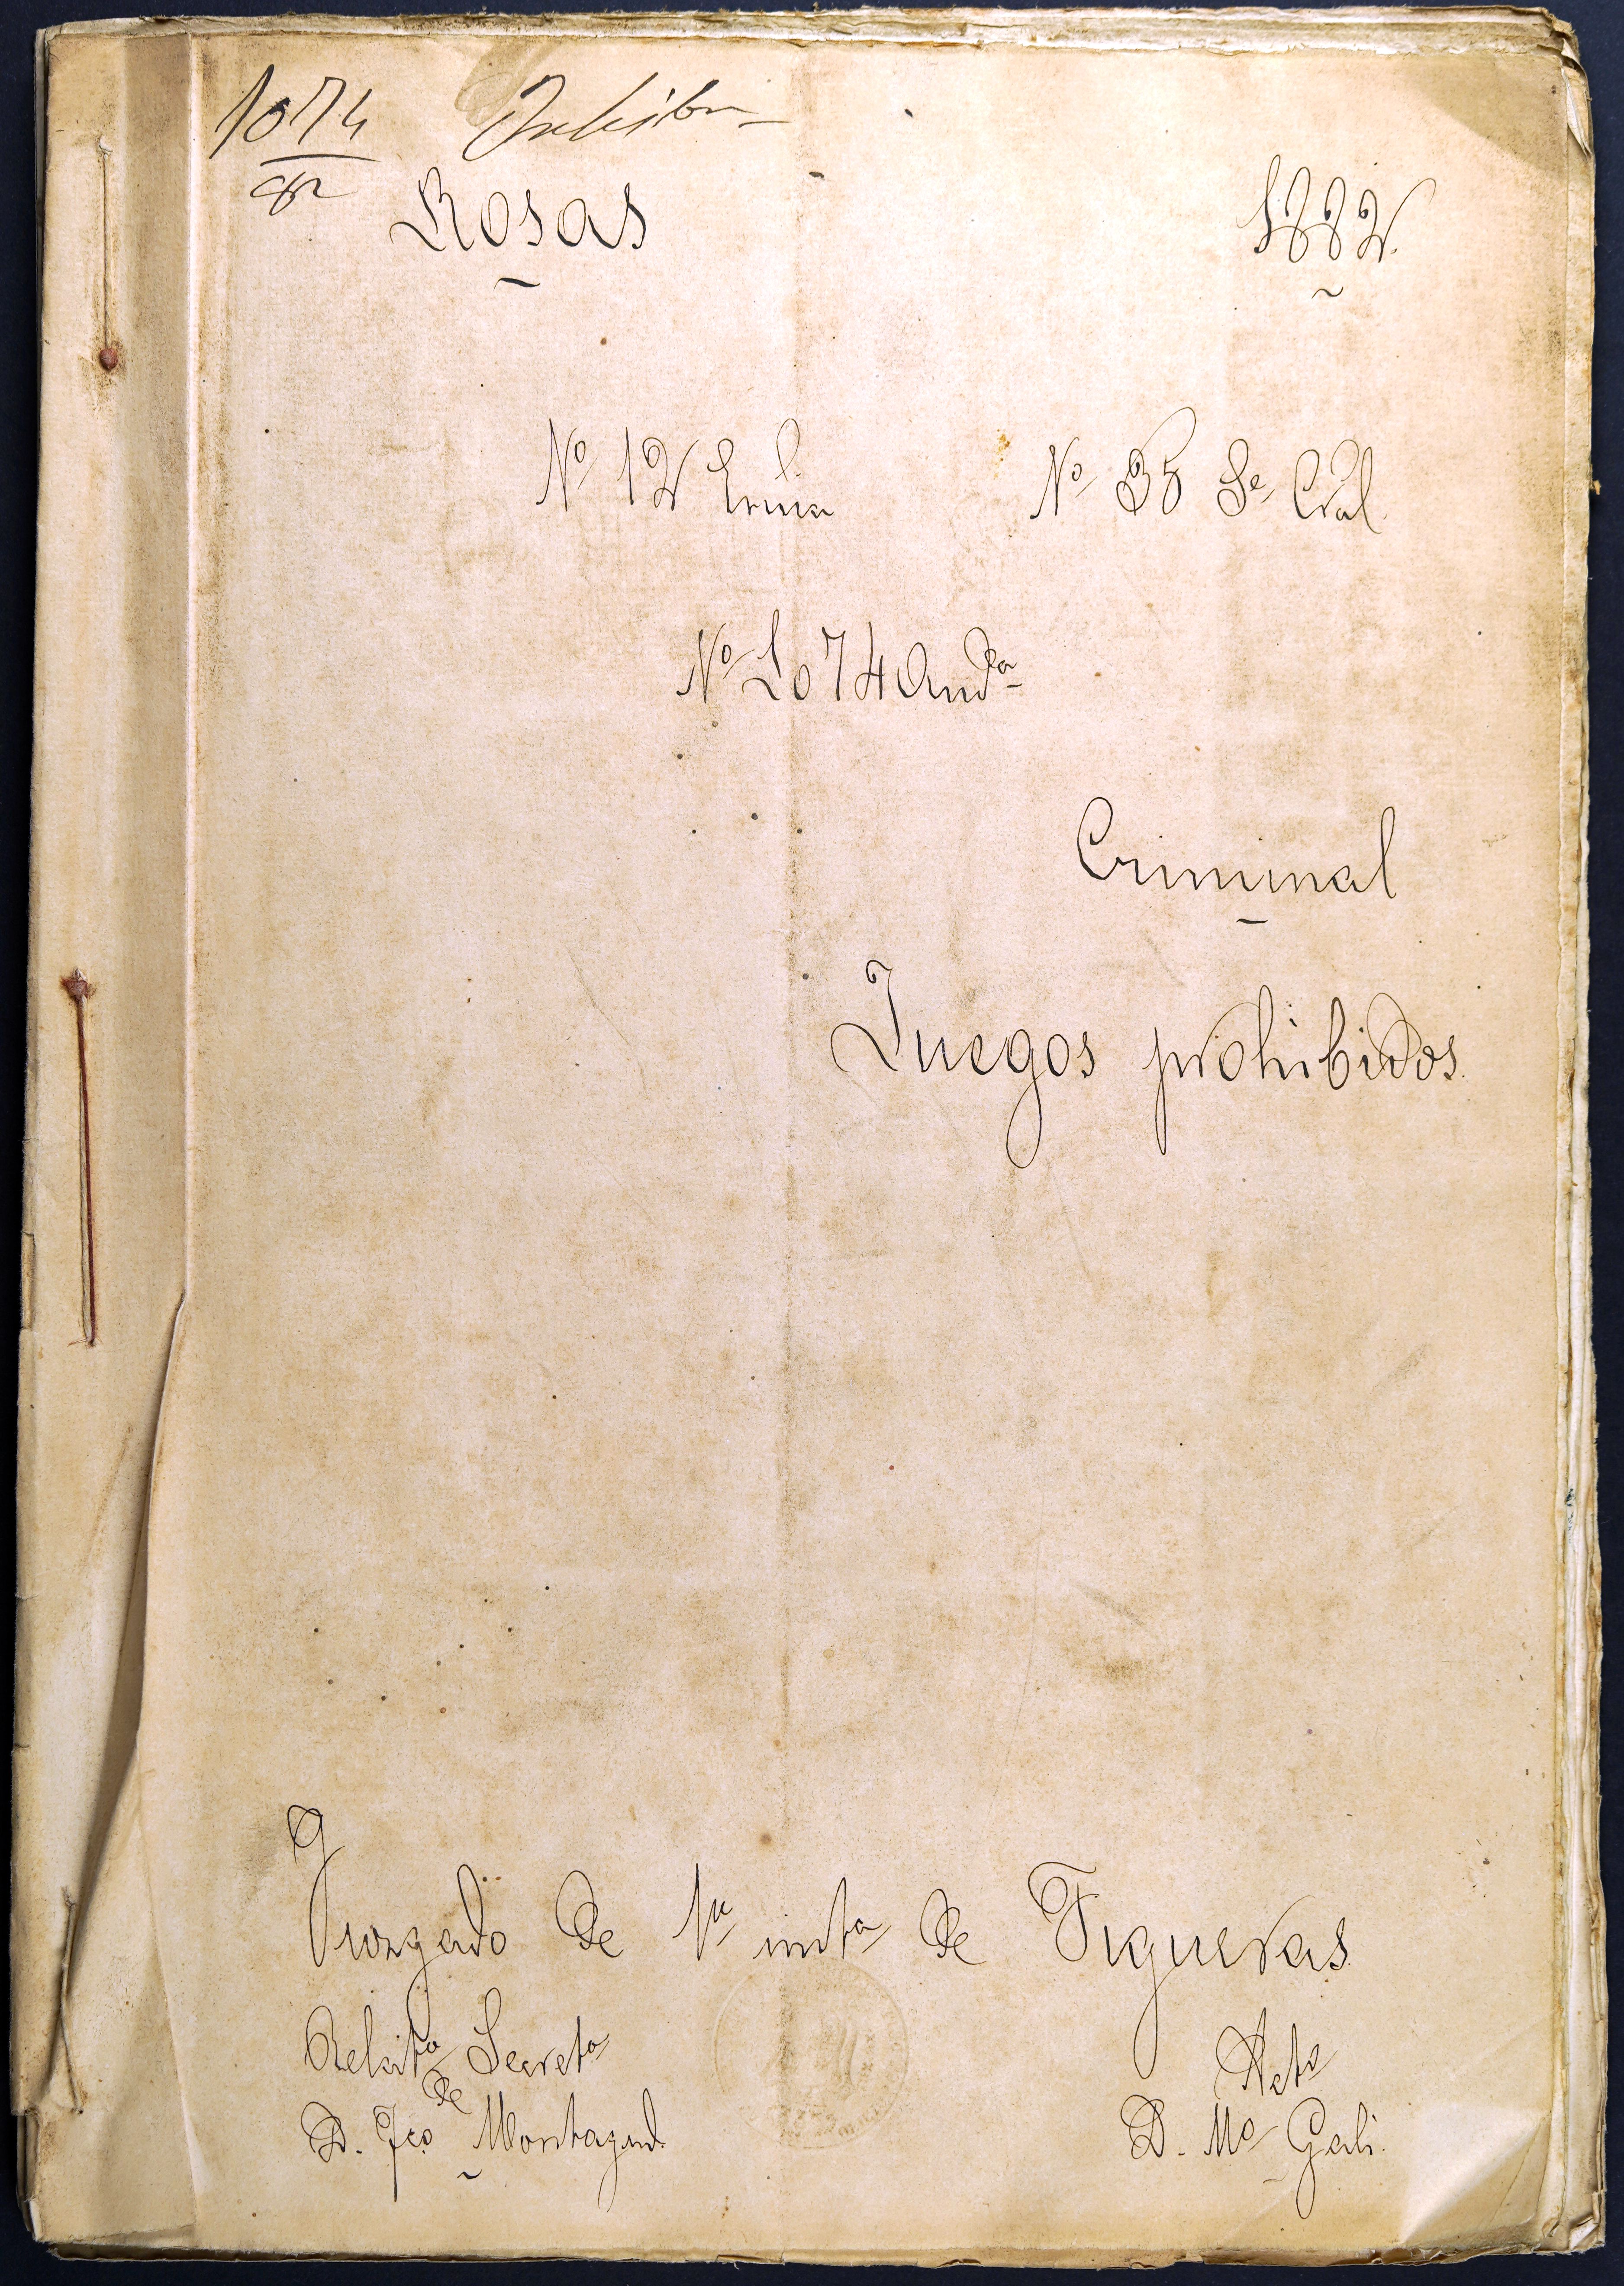 1074
82
Rosas 1882.
Nº 12 Nº 35 Se. Cral.
Nº 1074 Aud.ª
Criminal
Juegos prohibidos.
Juzgado de 1ª insta de Figueras.
Secreto
de
D. Fco. Montagud.
D. Mº Gali.